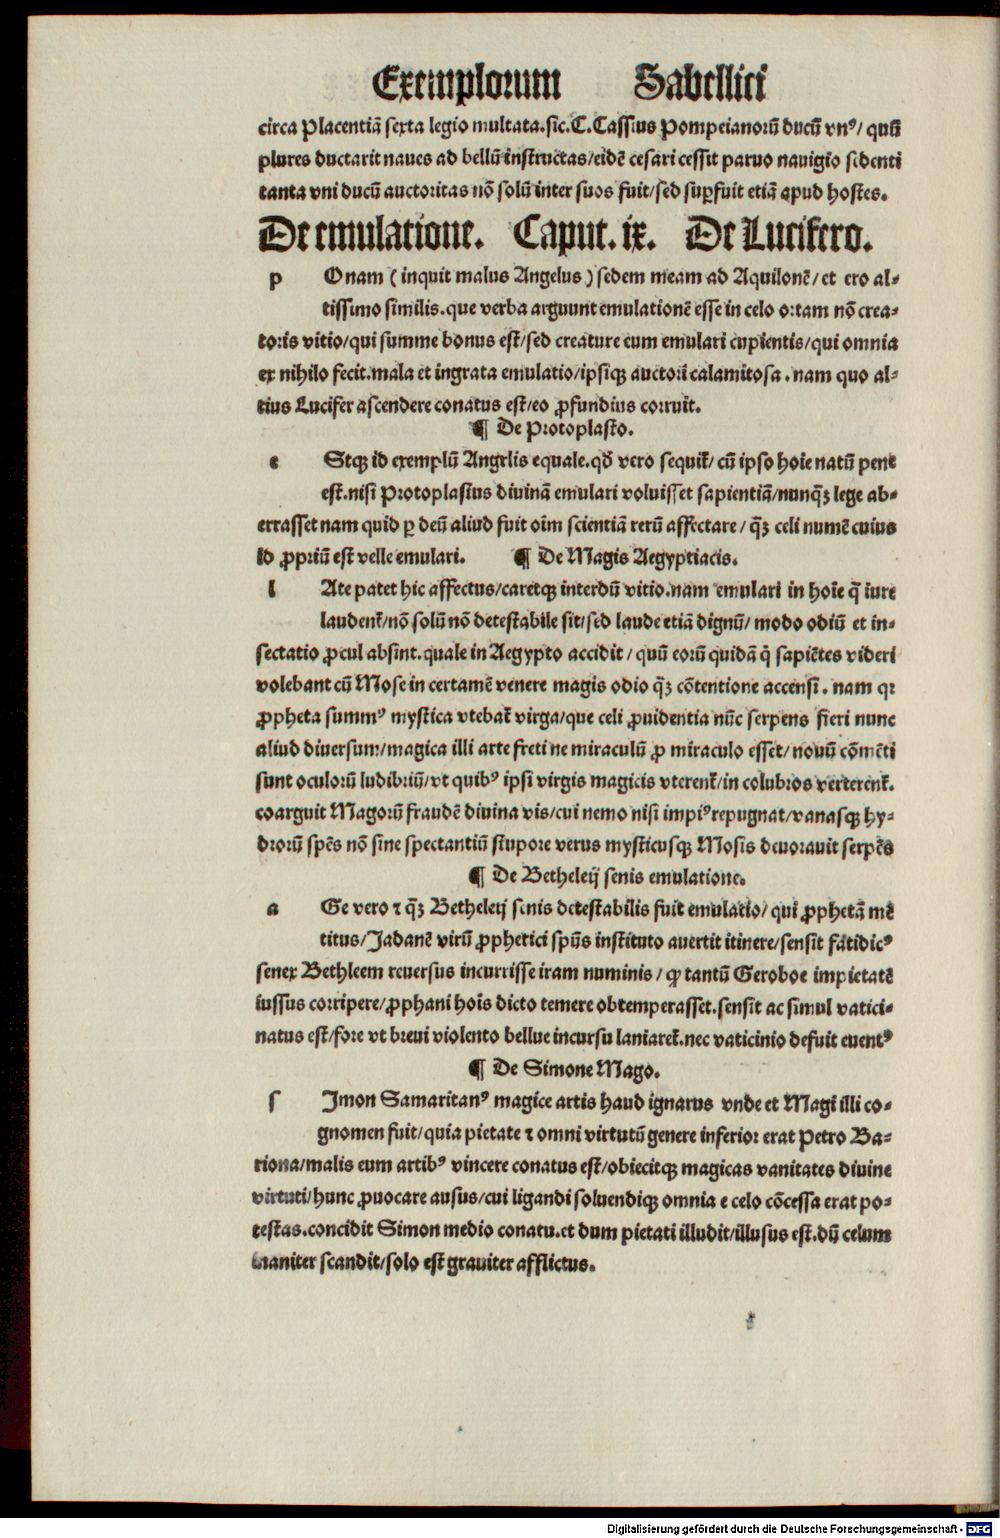 Exemplorum Sabellici
circa Placentiā sexta legio multata.sic.C.Cassius Pompeianorū ducū vnꝰ/ quū
plures ductarit naues ad bellū instructas/eidē cesari cessit paruo nauigio sedenti
tanta vni ducū auctoritas nō solū inter suos fuit/sed suꝑfuit etiā apud hostes.
De emulatione. Caput. ix. De Lucifero.
p Onam ( inquit malus Angelus ) sedem meam ad Aquilonē/ et ero al-
tissimo similis.que verba arguunt emulationē esse in celo ortam nō crea-
toris vitio/qui summe bonus est/sed creature eum emulari cupientis/qui omnia
ex nihilo fecit.mala et ingrata emulatio/ipsiqꝫ auctori calamitosa . nam quo al-
tius Lucifer ascendere conatus est/eo ꝓfundius corruit.
¶ De Protoplasto.
e Stqꝫ id exemplū Angelis equale.qđ vero sequit̄/ cū ipso hoīe natū pene
est.nisi Protoplastus diuinā emulari voluisset sapientiā/nunq̄ꝫ lege ab-
errasset nam quid ꝑ deū aliud fuit oīm scientiā rerū affectare / q̄ꝫ celi numē cuius
id ꝓpriū est velle emulari. ¶ De Magis Aegyptiacis.
l Ate patet hic affectus/caretqꝫ interdū vitio.nam emulari in hoīe q̄ iure
laudent̄/nō solū nō detestabile sit/sed laude etiā dignū/ modo odiū et in-
sectatio ꝓcul absint.quale in Aegypto accidit / quū eorū quidā q̄ sapiētes videri
volebant cū Mose in certamē venere magis odio q̄ꝫ cōtentione accensi . nam qꝛ
ꝓpheta summꝰ mystica vtebat̄ virga/que celi ꝓuidentia nūc serpens fieri nunc
aliud diuersum/magica illi arte freti ne miraculū ꝓ miraculo esset/ nouū cōmēti
sunt oculorū ludibriū/vt quibꝰ ipsi virgis magicis vterent̄/in colubros verterent̄.
coarguit Magorū fraudē diuina vis/cui nemo nisi impiꝰ repugnat/vanasqꝫ hy-
drorū spēs nō sine spectantiū stupore verus mysticusqꝫ Mosis deuorauit serpēs
¶ De Betheleij senis emulatione.
a Ge vero ꞇ q̄ꝫ Betheleij senis detestabilis fuit emulatio/ qui ꝓphetā mē
titus/Jadanē virū ꝓphetici spūs instituto auertit itinere/sensit fatidicꝰ
senex Bethleem reuersus incurrisse iram numinis / ꝙ tantū Geroboe impietatē
iussus corripere/ꝓphani hoīs dicto temere obtemperasset.sensit ac simul vatici-
natus est/fore vt breui violento bellue incursu laniaret̄.nec vaticinio defuit euentꝰ
¶ De Simone Mago.
s Jmon Samaritanꝰ magice artis haud ignarus vnde et Magi illi co-
gnomen fuit/quia pietate ꞇ omni virtutū genere inferior erat Petro Ba-
riona/malis eum artibꝰ vincere conatus est/obiecitqꝫ magicas vanitates diuine
virtuti/hunc ꝓuocare ausus/cui ligandi soluendiqꝫ omnia e celo cōcessa erat po-
testas.concidit Simon medio conatu.et dum pietati illudit/illusus est.dū celum
inaniter scandit/solo est grauiter afflictus.
Digitalisierung gefördert durch die Deutsche Forschungsgemeinschaft - DFG